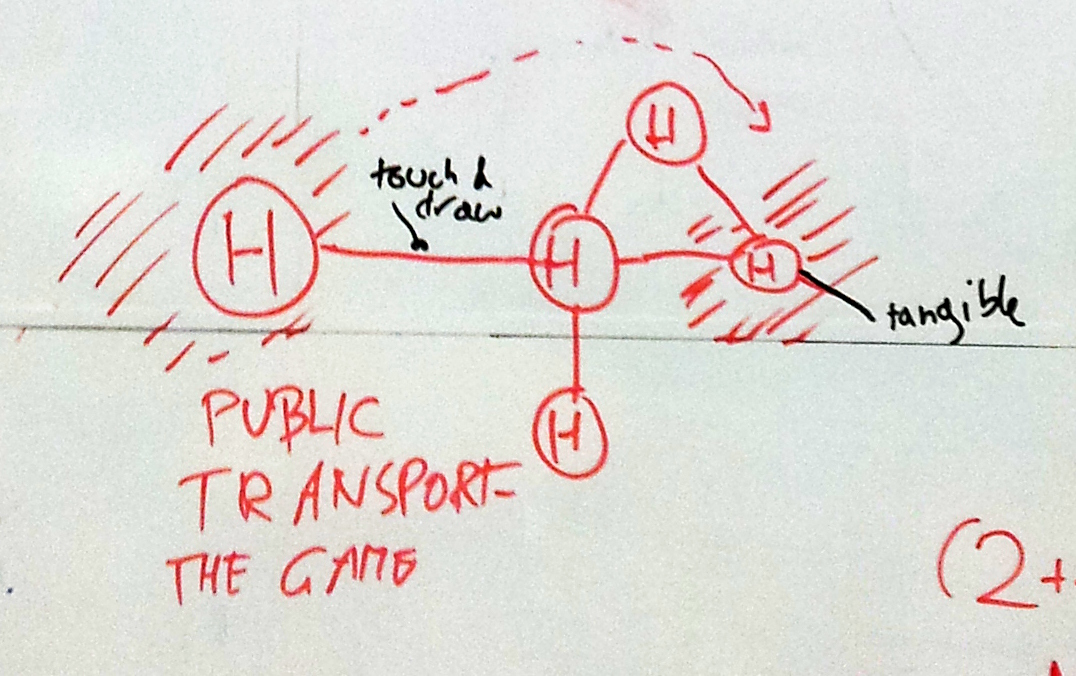 H
touch &
draw
H
H
H
tangible
H
PUBLIC
TRANSPORT-
THE GAME
(2+